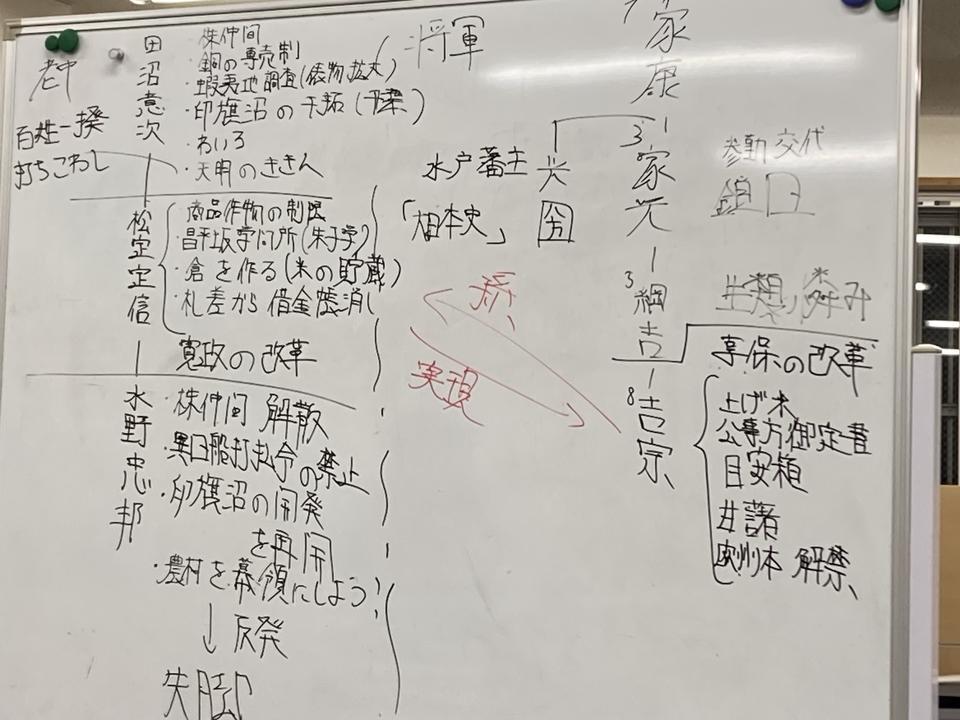 老中
田沼意次
・株仲間
・銅の専売制
・蝦夷地調査(俵物拡大)
・印旛沼の干拓(予業)
・わいろ
・天明のききん
百姓一揆
打ちこわし
松定定信
商品作物の制限
・昌平坂学问所(朱子学)
・倉を作る(米の貯蔵)
・札差から借金帳消し
寛政の改革
水野忠邦
・株仲间 解散
・異国船打払令の禁止
・印旛沼の開発
を再開
・農村を幕領にしよう
↓反発
失脚
将軍
家康
水戸蕃主 光
「大日本史」 圀
3 家光
参勤交代
鎖国
綱吉
生類憐み
8 吉宗
享保の改革
上げ米
公事方御定書
目安箱
甘藷
欧州本 解禁
実現